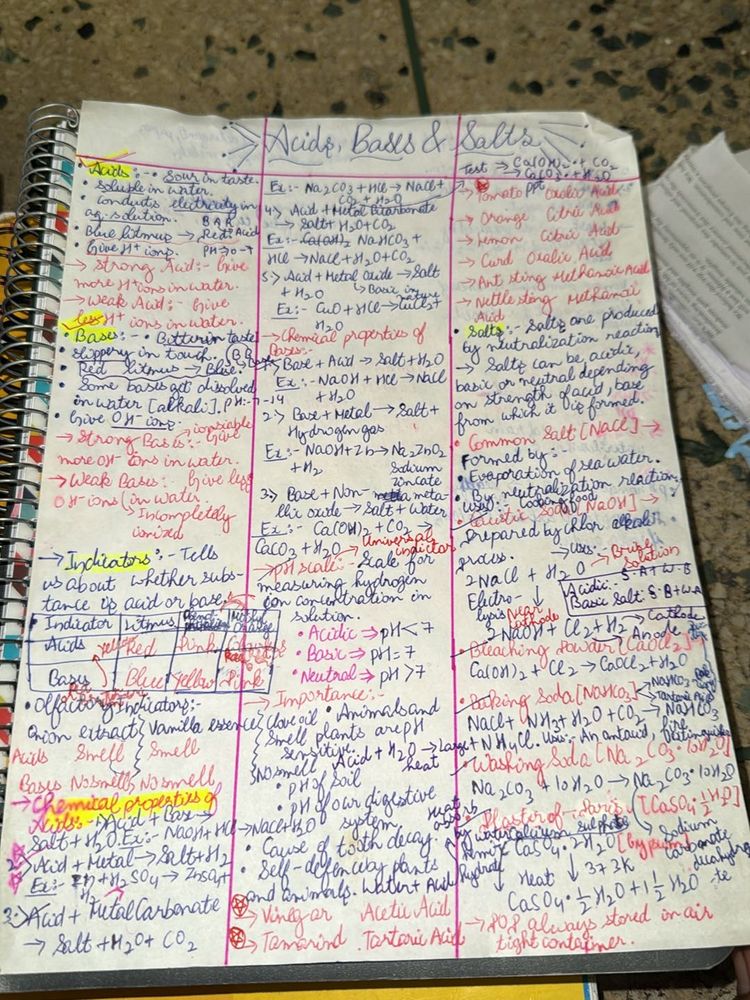 Acids, Bases & Salts
• Acids :- • Sour in taste.
• Soluble in water.
• conducts electricity in
aq. solution.
• Blue litmus → Red.
• Give H+ ions.
→ Strong Acid:- Give
more H+ ions in water.
→ Weak Acid:- Give
less H+ ions in water.
• Bases :- • Bitter in taste
• slippery in touch.
• Red litmus → Blue.
• Some bases get dissolved
in water [alkali]. PH:- 7-14
• Give OH- ions.
→ Strong Bases:- Give
more OH- ions in water.
→ Weak Bases:- Give less
OH- ions in water.
→ Incompletely
ionized
→ Indicators :- Tells
us about whether subs-
tance is acid or base.
• Indicator Litmus
Acids Red Pink
Bases Blue Yellow Pink
• Olfactory Indicators:-
Onion extract Vanilla essence Clove oil
Acids Smell Smell
Bases No smell No smell No smell
→ Chemical properties of
Acids:- Acid + Base →
Salt + H2O. Ex:- NaOH + HCl → NaCl + H2O
2> Acid + Metal → Salt + H2
Ex:- Zn + H2SO4 → ZnSO4 +
H2
3> Acid + Metal Carbonate
→ Salt + H2O + CO2
Ex:- Na2CO3 + HCl → NaCl +
CO2 + H2O
4> Acid + Metal Bicarbonate
→ Salt + H2O + CO2
Ex:- NaHCO3 +
HCl → NaCl + H2O + CO2
5> Acid + Metal Oxide → Salt
+ H2O → Basic in
nature
Ex:- CuO + HCl → CuCl2 +
H2O
→ Chemical properties of
Bases:-
Base + Acid → Salt + H2O
Ex:- NaOH + HCl → NaCl
+ H2O
2> Base + Metal → Salt +
Hydrogen gas
Ex:- NaOH + Zn → Na2ZnO2
+ H2 Sodium
zincate
3> Base + Non- meta-
llic oxide → Salt + Water
Ex:- Ca(OH)2 + CO2 →
CaCO3 + H2O → Universal
indictor
→ pH scale:- Scale for
measuring hydrogen
ion concentration in
solution.
• Acidic → pH < 7
• Basic → pH = 7
• Neutral → pH > 7
→ Importance:-
• Animals and
plants are pH
sensitive.
Acid + H2O → Large
heat
• pH of soil
• pH of our digestive
system
• Cause of tooth decay.
• Self-defence by plants
and animals. Water + Acid
→ Vinegar Acetic Acid
→ Tamarind Tartaric Acid
Test → Ca(OH)2 + CO2
→ CaCO3 + H2O
ppt
→ Tomato Oxalic Acid
→ Orange Citric Acid
→ Lemon Citric Acid
→ Curd Oxalic Acid
→ Ant sting Methanoic Acid
→ Nettle sting Methanoic
Acid
• Salts:- Salts are produced
by neutralization reaction
→ Salts can be, acidic,
basic or neutral depending
on strength of acid, base
from which it is formed.
• Common Salt [NaCl] →
Formed by:-
• Evaporation of sea water.
• By neutralization reaction.
uses:- Cooking food
• Caustic Soda [NaOH] →
Prepared by chlor alkali
process.
2NaCl + H2O → Brine
Solution
Electro-
lysis Near
cathode
Acidic:- S.A + W.B
Basic Salt:- S.B + W.A
→ 2NaOH + Cl2 + H2 → Cathode
Anode
• Bleaching Powder [CaOCl2] →
Ca(OH)2 + Cl2 → CaOCl2 + H2O
• Baking Soda [NaHCO3]
NaCl + NH3 + H2O + CO2 → NaHCO3
+ NH4Cl. Uses:- An antacid,
• Washing Soda [Na2CO3·10H2O]
Na2CO3 + 10H2O → Na2CO3·10H2O
Sodium
carbonate
decahydra-
te
• Plaster of Paris [CaSO4·½H2O]
calcium sulphate
hemi-
hydrate
CaSO4·2H2O [Gypsum]
Heat ↓ 373K
CaSO4·½H2O + 1½H2O
→ POP always stored in air
tight container.